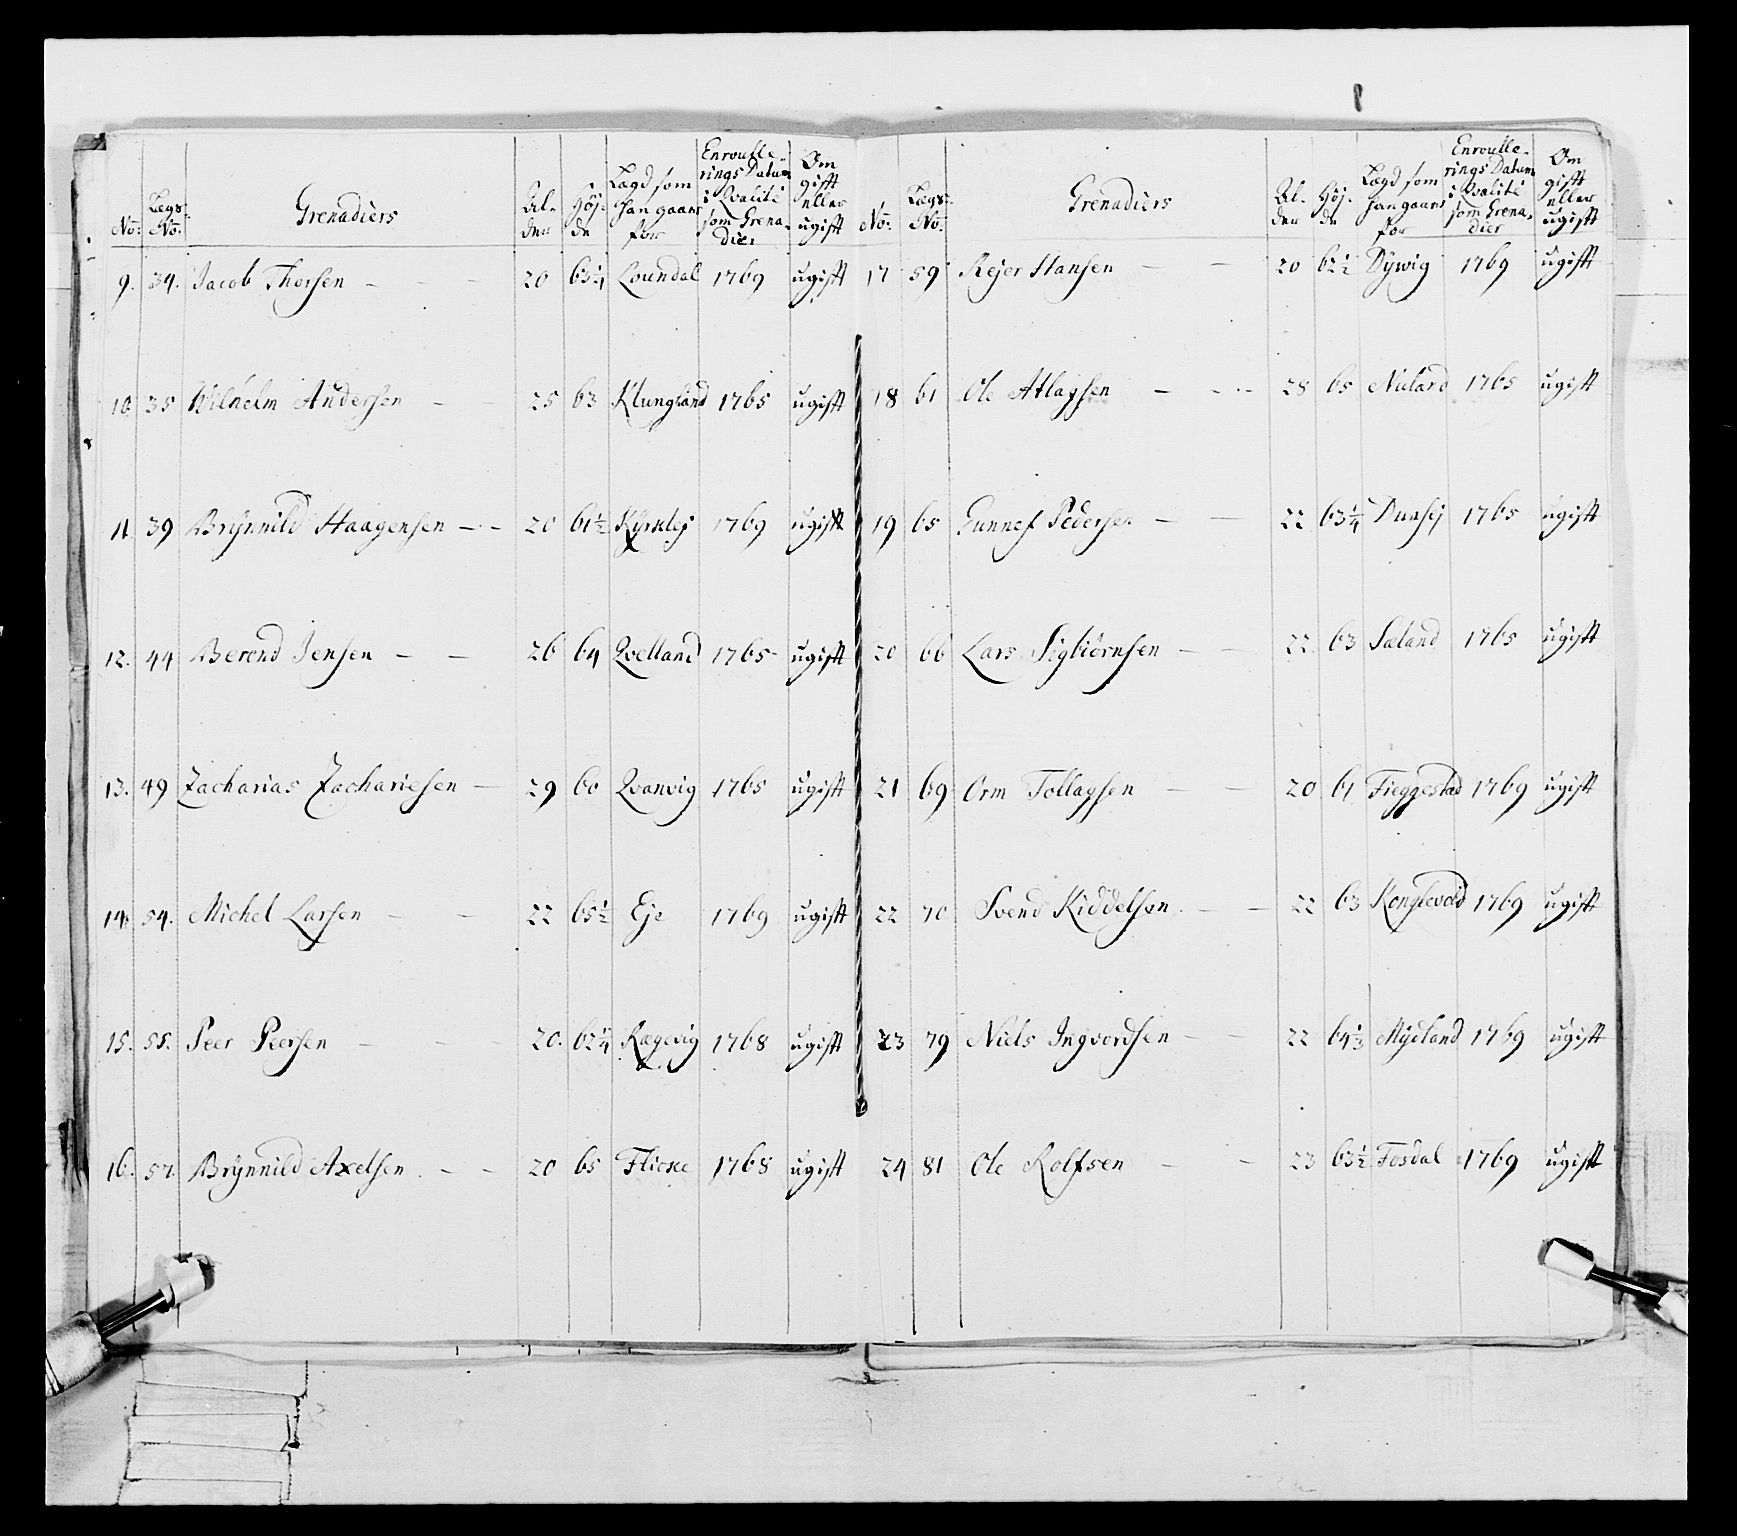 No: Lægs No: Grenadiers Al- der Höj- de Lægd som han gaaer for Enroulle- rings Datum i Qvalité som Grena- dier Om gift eller ugift
9. 34. Jacob Thorsen - - - 20 63 1/4 Loundal 1769 ugift
10 35 Wilhelm Andersen - - 25 63 Klungland 1765 ugift
11 39 Brÿnnild Haagensen - - 20 61 1/2 Kÿrklej 1769 ugift
12. 44 Berend Jensen - - 26 64 Qvelland 1765 ugift
13. 49 Zacharias Zachariesen - 29 60 Qvanvig 1765 ugift
14. 54. Michel Larsen - 22 65 1/2 Eje 1769 ugift
15. 55. Peer Peersen - - - 20. 62 1/4 Rægevig 1768 ugift
16. 57. Brÿnnild Axelsen. - - 20 65 Flicke 1768 ugift
No: Lægs No: Grenadiers Al- der Höj- de Lægd som han gaaer for Enroulle- rings Datum i Qvalité som Grena- dier Om gift eller ugift
17 59 Rejer Hansen - - 20 62 1/2 Dÿwig 1769 ugift
18 61 Ole Atlagsen - - - 28 65 Nuland 1765 ugift
19 65 Gunnef Pedersen - - 22 63 1/4 Dunsej 1765 ugift
20 66 Lars Sigbiörnsen - - 22 63 Sæland 1765 ugift
21 69 Orm Tollagsen - - 20 61 Fieggestad 1769 ugift
22 70 Svend Kiddelsen. - - 22 63 Konglevold 1769 ugift
23 79 Niels Ingvordsen - - 22 64 1/3 Mÿdland 1769 ugift
24 81 Ole Rolfsen - - 23 63 1/2 Fosdal 1769 ugift